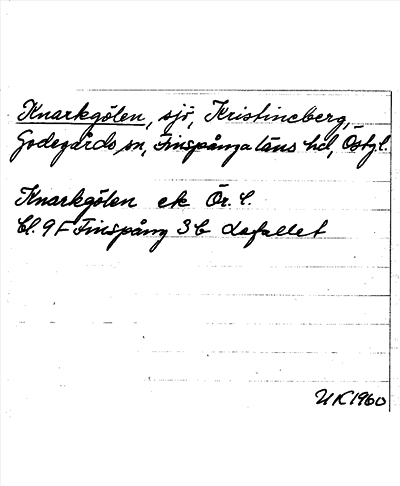 Knarkgölen, sjö, Kristineberg,
Godegårds sn, Finspånga läns hd, Östgl.
Knarkgölen ek Ör. L.
bl. 9 F Finspång 3 b Lafallet
UK 1960